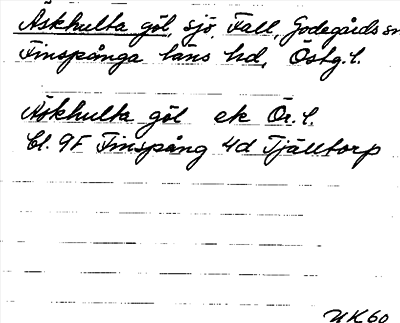 Äskhulta göl, sjö, Fall, Godegårds sn
Finspånga läns hd, Östg. l.
Äskhulta göl ek Ör. l.
bl. 9F Finspång 4d Tjälltorp
UK60